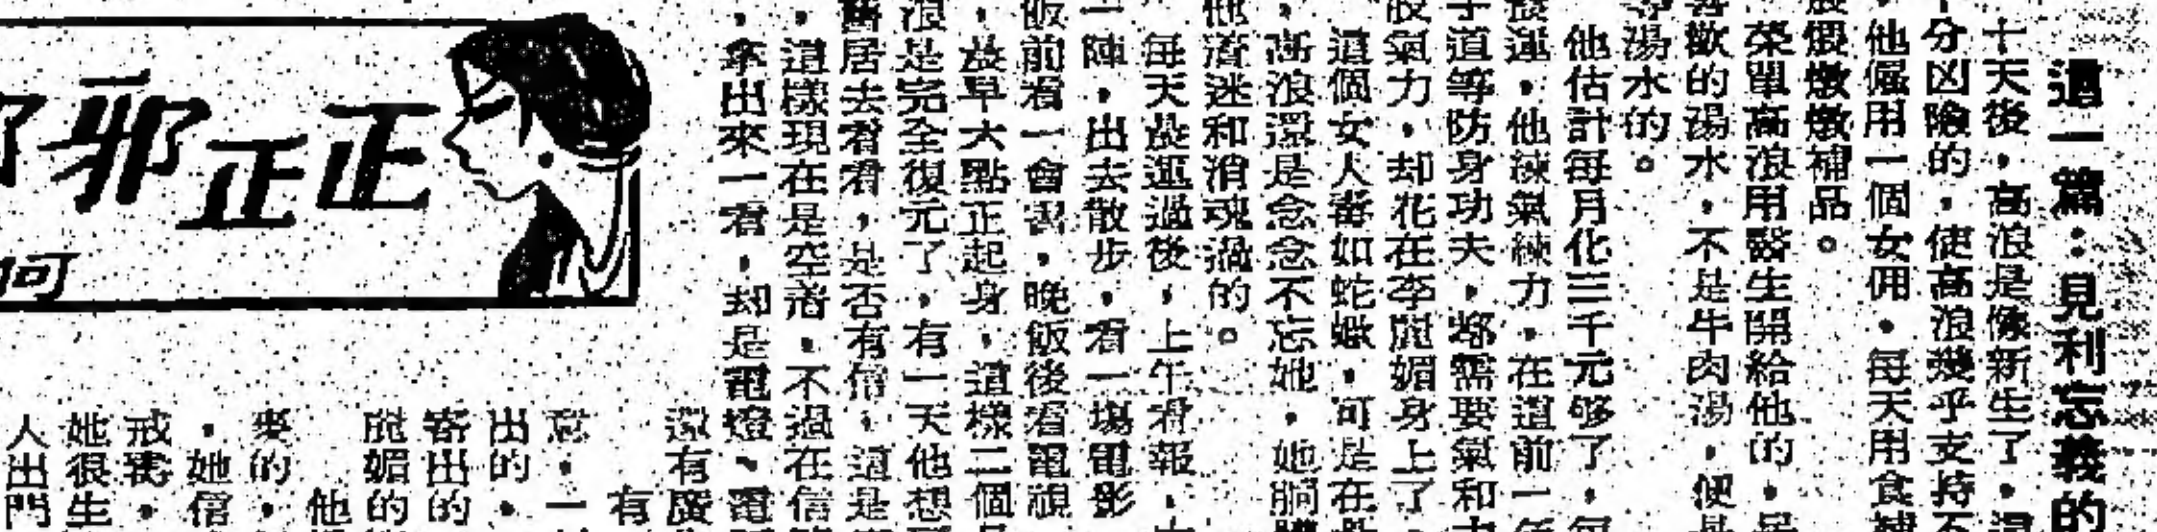 這一篇：見利忘義的
十天後，高浪是像新生了，
十分凶險的，使高浪幾乎支持不
，他僱用一個女佣，每天用食補
煨燉燉補品。
菜單高浪用醫生開給他的，是
喜歡的湯水，不是牛肉湯，便是
等湯水的。
他估計每月化三千元够了，每
晨運，他練氣練力，在這前一年
手道等防身功夫，都需要氣和力
股氣力，却花在李麗媚身上了，
這個女人毒如蛇蠍，可是在
，高浪還是念念不忘她，她胴體
他渡迷和消魂過的。
每天晨運過後，上午看報，
一陣，出去散步，看一塲電影
飯前看一會書，晚飯後看電視
，晨早六點正起身，這樣二個月
浪是完全復元了，有一天他想
舊居去看看，是否有信，這是
，這樣現在是空着，不過在信
，拿出來一看，却是電燈、電
還有廣
有
正正邪邪
何
意，一
出的，
寄出的
麗媚的
他
麥的，
，她信
戒備，
她很生
人出門